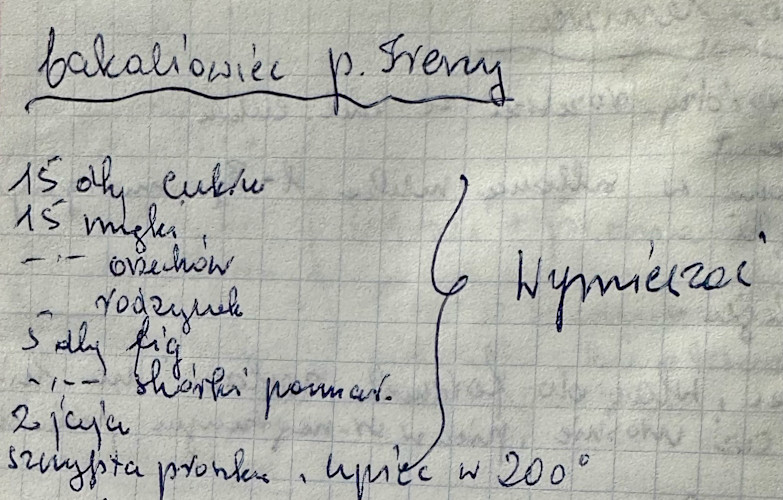 bakaliowiec p. Ireny
15 dkg cukru
15 mąki
-"- orzechów
rodzynek
5 dkg fig
-"- skórki pomar.
2 jaja
szczypta proszku, upiec w 200°
Wymieszać